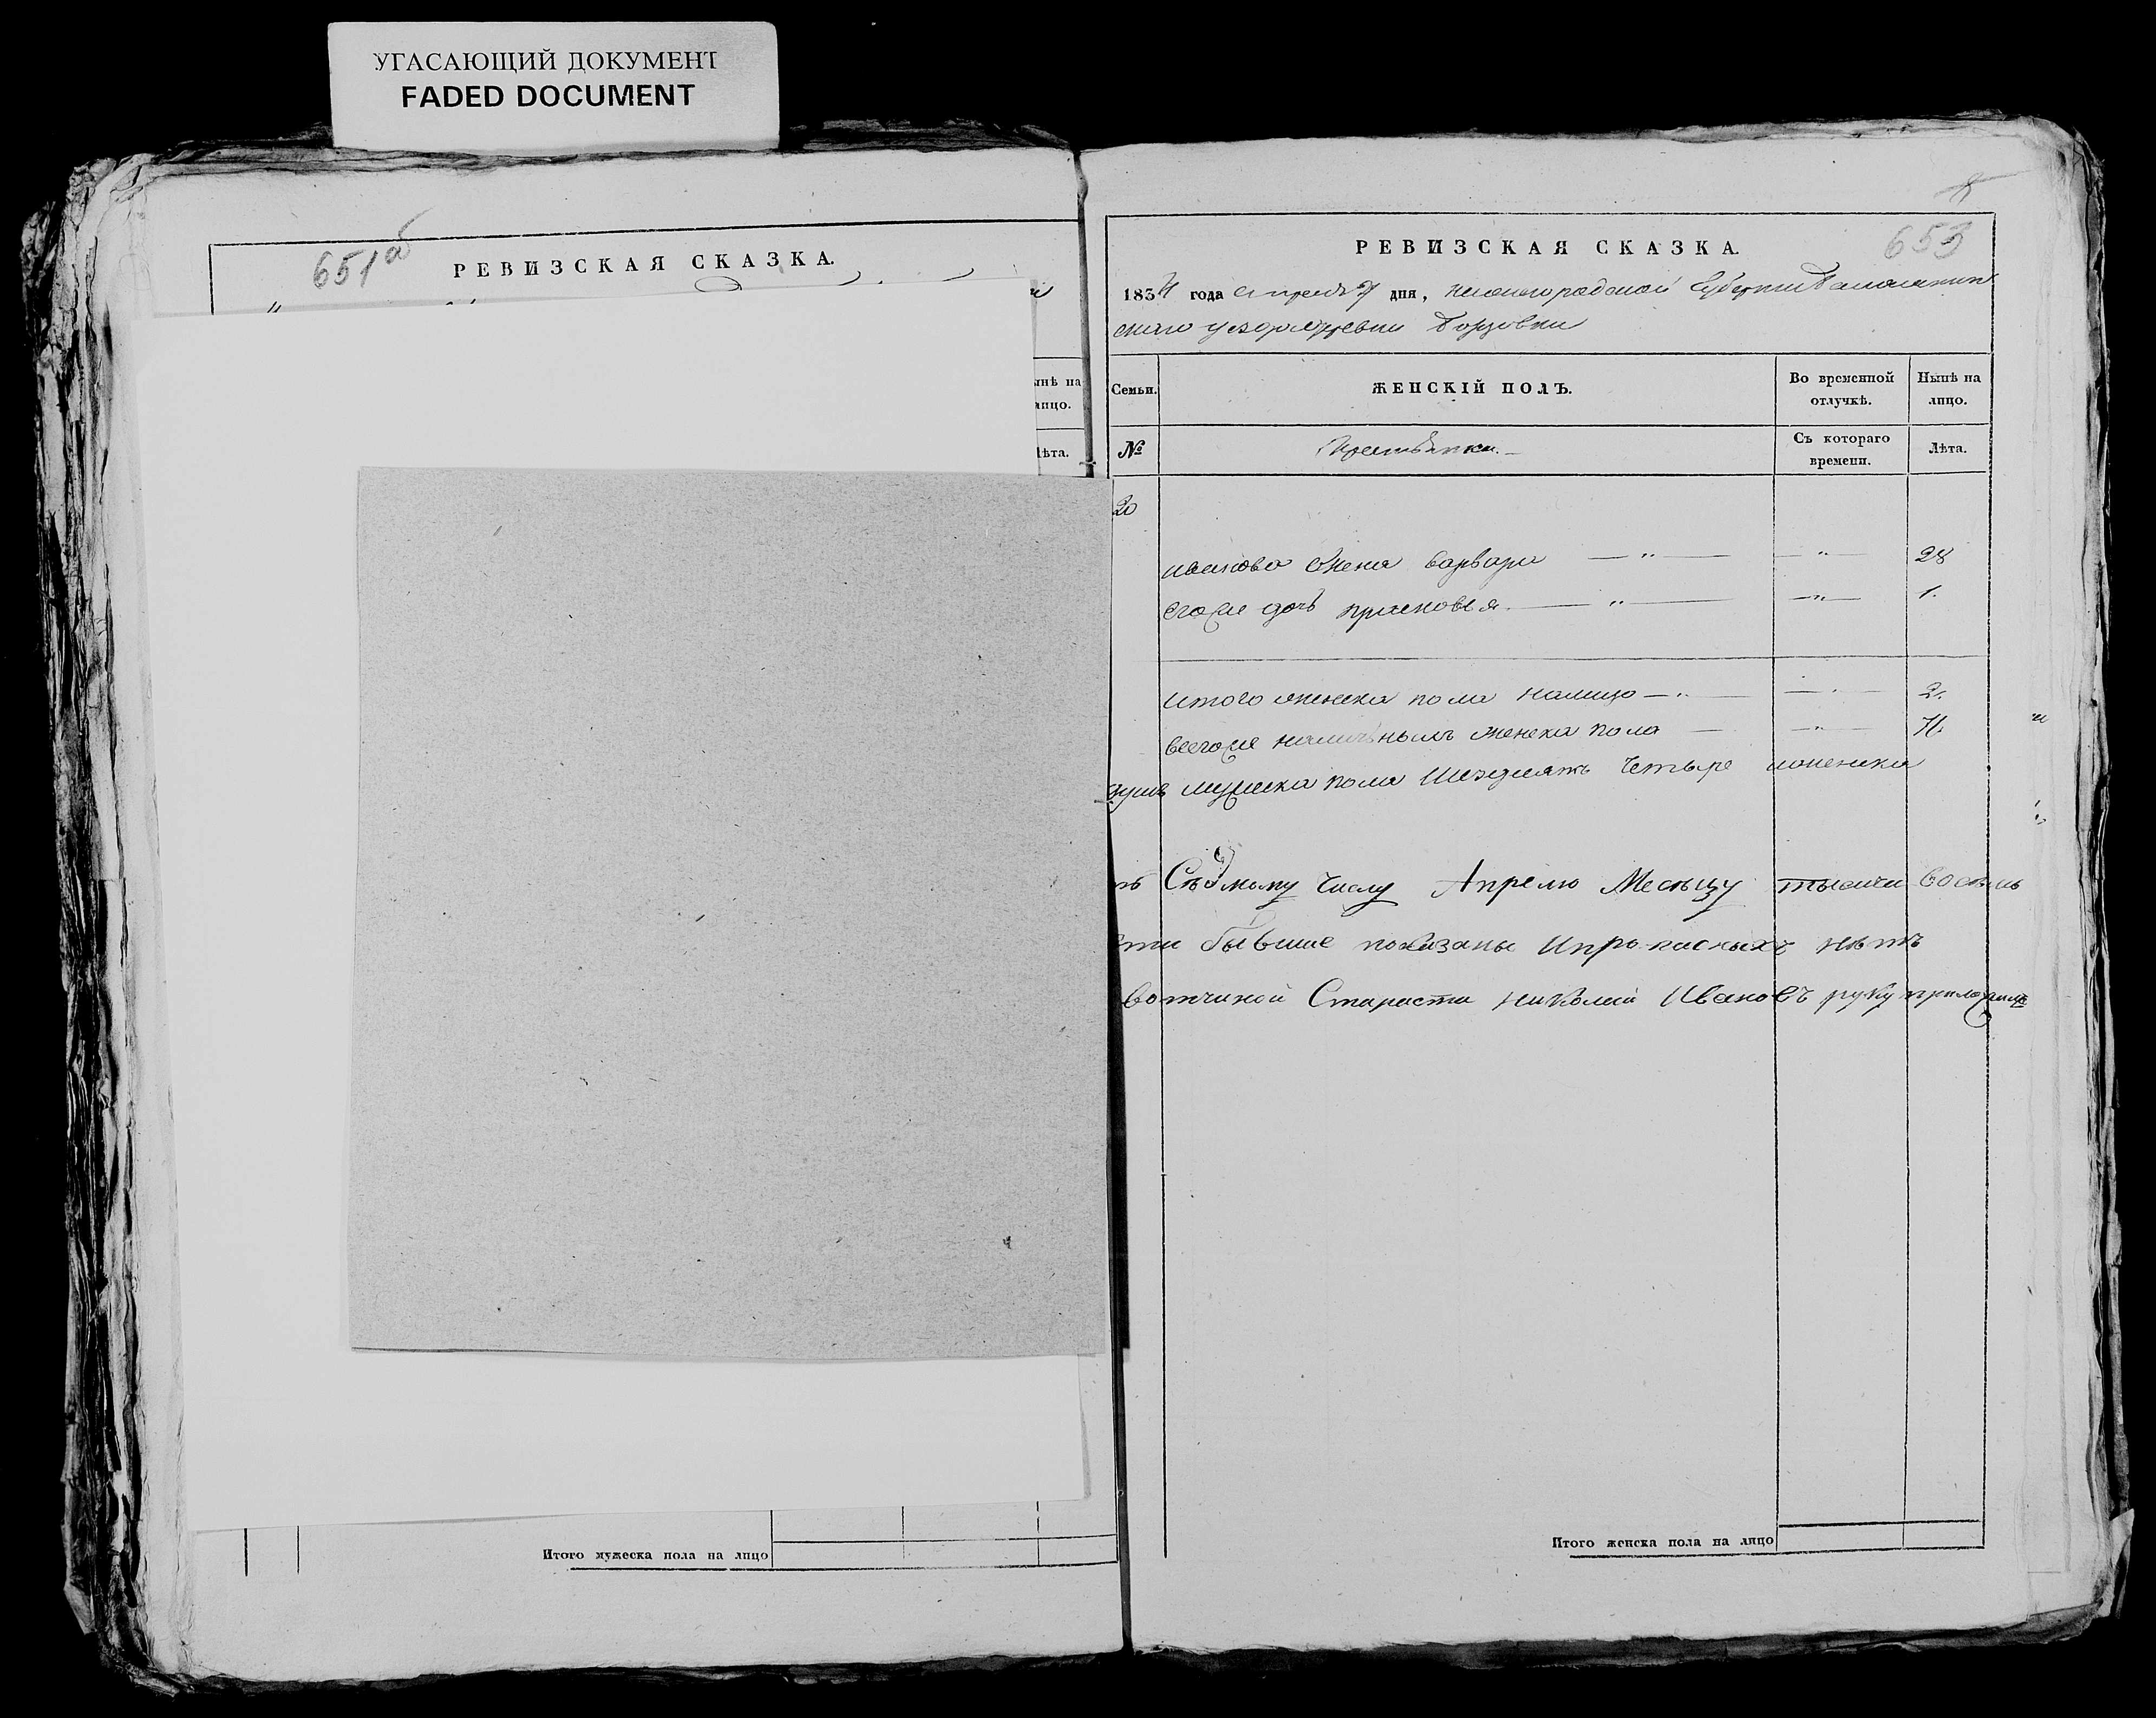 УГАСАЮЩИЙ ДОКУМЕНТ
FADED DOCUMENT
651 об
РЕВИЗСКАЯ СКАЗКА.
ынѣ на
лицо.
Лѣта.
Итого мужеска пола на лицо
653
РЕВИЗСКАЯ СКАЗКА.
1834 года апреля 7 дня, нижегородской губернии Балахнин
скаго уезда деревни
Семьи.
ЖЕНСКІЙ ПОЛЪ.
Во временной отлучкѣ.
Нынѣ на лицо.
№
Крестьянки.
Съ котораго времени.
Лѣта.
20
иванова жена варвара — " — — " — 28
егоже дочь прасковья — " — — " — 1.
итого женска пола налицо — " — 2.
всегоже наличныхъ женска пола — — " —
душъ мужеска пола четыре ионенска
Съдмому числу Апрелю Месяцу тысяча восемь
бывшие показаны Ипрописныхъ нѣтъ
вотчиной Староста николай Ивановъ руку приложилъ
Итого женска пола на лицо